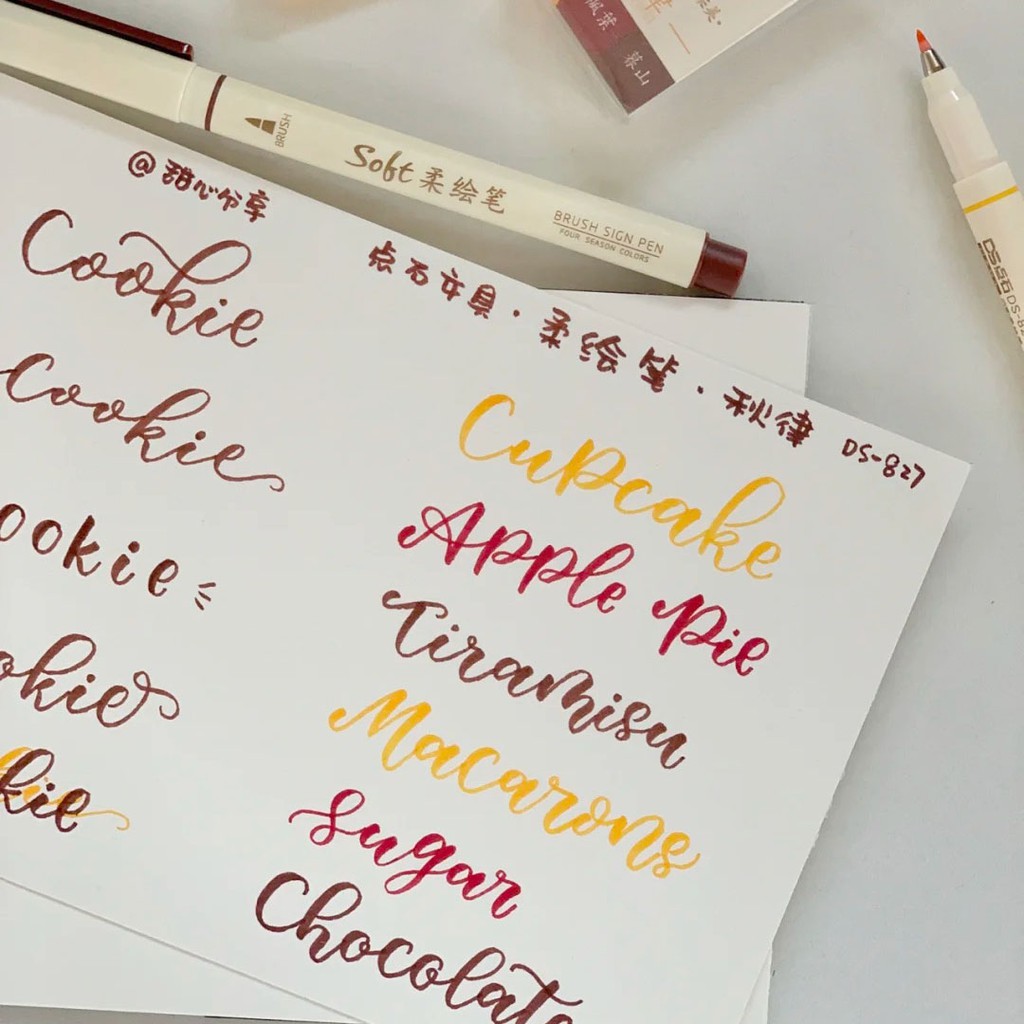 佩葉 暮山
BRUSH
Soft 柔绘笔
BRUSH SIGN PEN
FOUR SEASON COLORS
DS点石 DS-8
@甜心分享
点石文具·柔绘笔·秋律 DS-827
Cookie
Cookie
ookie
okie
kie
Cupcake
Apple Pie
Tiramisu
Macarons
Sugar
Chocolate